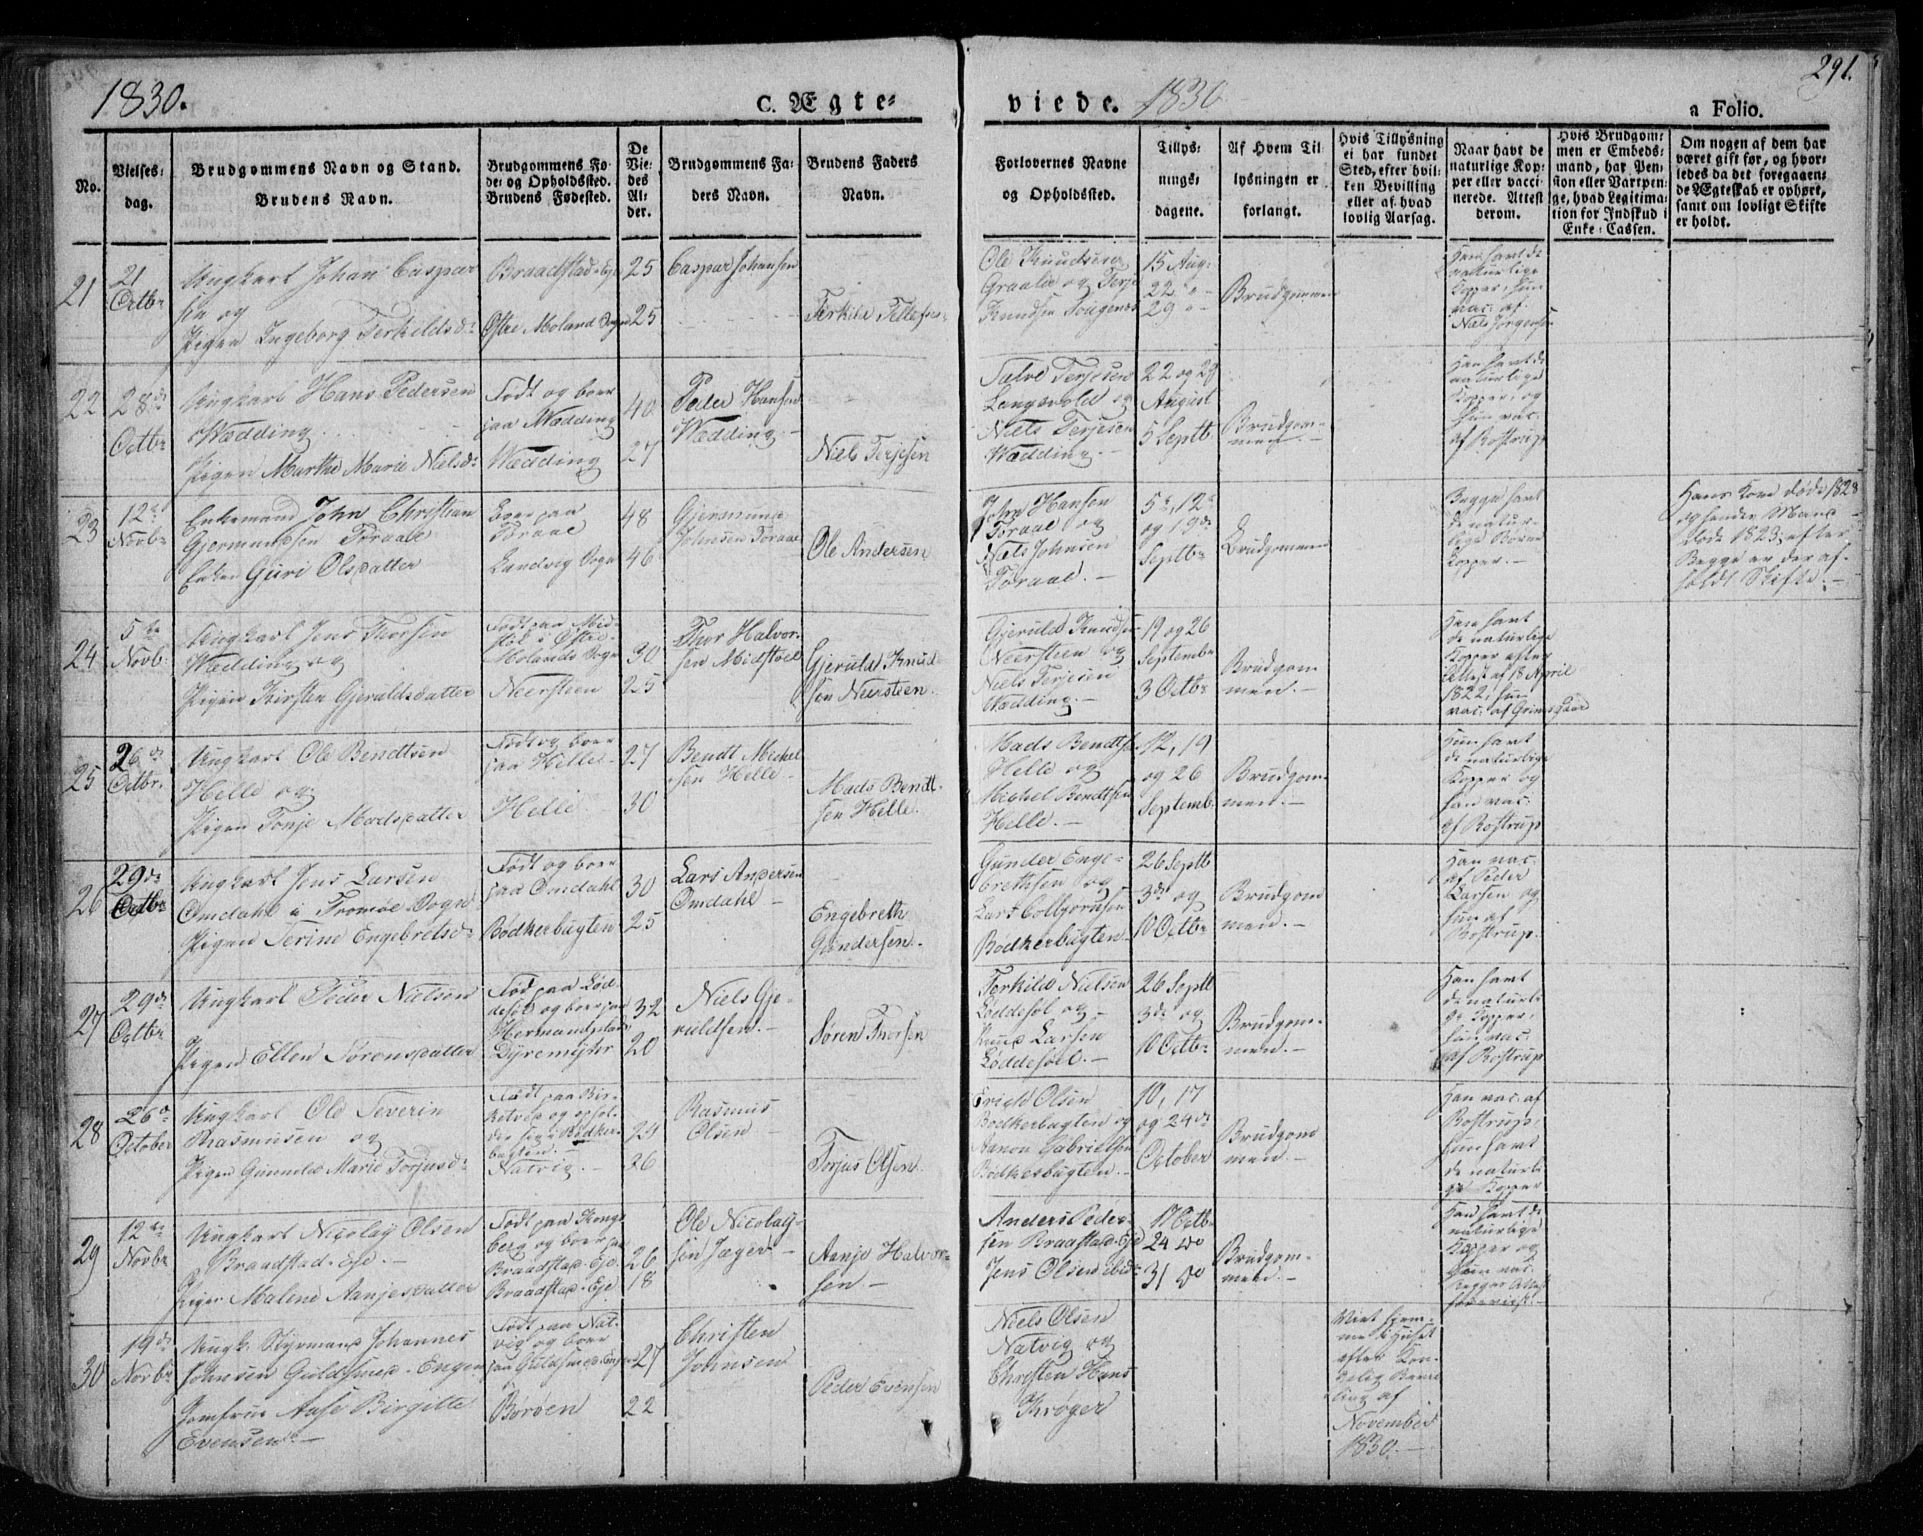 1830.
C. Ægte-
viede. 1830
291.
a Folio.
No.
Vielses-
dag.
Brudgommens Navn og Stand.
Brudens Navn.
Brudgommens Fø-
de- og Opholdssted.
Brudens Fødested.
De
Vie-
des
Al-
der.
Brudgommens Fa-
ders Navn.
Brudens Faders
Navn.
Forlovernes Navne
og Opholdssted.
Tillys-
nings-
dagene.
Af Hvem Til-
lysningen er
forlangt.
Hvis Tillysning
ei har fundet
Sted, efter hvil-
ken Bevilling
eller af hvad
lovlig Aarsag.
Naar havt de
naturlige Kop-
per eller vacci-
nerede. Attest
derom.
Hvis Brudgom-
men er Embeds-
mand, har Pen-
sion eller Vartpen-
ge, hvad Legitima-
tion for Indskud i
Enke-Cassen.
Om nogen af dem har
været gift før, og hvor-
ledes da det foregaaen-
de Ægteskab er ophørt,
samt om lovligt Skifte
er holdt.
21
21
Octbr
Ungkarl Johan Caspar
sen og
Pigen Ingeborg Terkildsd:
Braadstad-Eje
Østre Moland Sogn
25
25
Caspar Johansen
Terkild Tellefsen
Ole Knudsen
Graalie og Terje
Knudsen
15 Aug:
22 "
29 "
Brudgommen
Han havt de
naturlige
Kopper, hun
vac. af
Niels Jørgensen
22
28de
Octbr
Ungkarl Hans Pedersen
Wædding
Pigen Marthe Marie Nielsd:
Født og boer
paa Wædding
Wædding
40
27
Peder Hansen
Wædding
Niels Terjesen
Salve Terjesen
Langevold og
Niels Terjesen
Wædding
22 og 29
August
5 Septb
Brudgom-
men
Han havt de
naturlige
Kopper, og
hun vac.
af Rostrup
23
12te
Novbr
Enkemand John Christian
Gjermundsen Toraae
Enken Guri Olsdatter
boer paa
Toraae
Landvig Sogn
48
46
Gjermund
Johnsen Toraae
Ole Andersen
John Hansen
Toraae og
Niels Johnsen
Toraae
5te, 12te
og 19de
Septbr
Brudgommen
Begge havt
de natur-
lige Børne
Kopper
Hans Kone døde 1828
og hendes Mand
døde 1823, efter
Begge er der af-
holdt Skifte
24
5te
Novb.
Ungkarl Jens Thorsen
Wædding og
Pigen Kirsten Gjeruldsdatter
Født paa Mid-
støl i Østre
Molands Sogn
Neersteen
30
25
Thor Halvor-
sen Midstøel
Gjeruld Knud-
sen Neersteen
Gjeruld Knudsen
Neersteen og
Niels Terjesen
Wædding
19 og 26
Septembr
3 Octbr
Brudgom
men
Han havt
de naturlige
Kopper efter
Attest af 18 April
1822, hun
vac. af Grimsgaard
25
26de
Octbr.
Ungkarl Ole Bendtsen
Helle og
Pigen Tonje Madsdatter
Født og boer
paa Helle
Helle
27
30
Bendt Michel
sen Helle
Mads Bendt-
sen Helle
Mads Bendtsen
Helle og
Michel Bendtsen
Helle
12, 19
og 26
Septemb.
Brudgom-
men
Hun havt
de naturlige
Kopper og
han vac.
af Rostrup
26
29de
Octbr
Ungkarl Jens Larsen
Omdahl i Tromøe Sogn
Pigen Terine Engebretsd:
Født og boer
paa Omdahl
Bødkerbugten
30
25
Lars Andersen
Omdahl
Engebreth
Gundersen
Gunder Enge-
brethsen og
Lars Colbjørnsen
Bødkerbugten
26 Septb
3de og
10 Octbr
Brudgom
men
Han vac.
af Peder
Larsen og
hun af
Rostrup
27
29de
Octbr
Ungkarl Peder Nielsen
Pigen Ellen Sørensdatter
Født paa Lød-
desøl og boer paa
Hermandsplads
Dyremyhr
32
20
Niels Gje-
ruldsen
Søren Thorsen
Terkild Nielsen
Løddesøl og
Knud Larsen
Løddesøl
26 Septb
3de og
10 Octbr
Brudgom-
men
Han havt
de naturli-
ge Kopper,
hun vac.
af Rostrup
28
26de
October
Ungkarl Ole Severin
Rasmussen og
Pigen Gunnild Marie Torjusd:
Født paa Bir-
ketvedt og ophol-
der sig i Bødker-
bugten
Natvig
24
36
Rasmus
Olsen
Torjus Olsen
Olsen
Bødkerbugten og
Aanon Gabrielsen
Bødkerbugten
10, 17
og 24de
October
Brudgom
men
Han vac. af
Rostrup,
hun havt
de naturli
ge Kopper
29
12te
Novbr
Ungkarl Nicolay Olsen
Braadstad-Eje
Pigen Malene Aanjesdatter
Født paa Kongs
berg og boer paa
Braadstad-Eje
Braadstad-Eje
26
18
Ole Nicolay-
sen Jæger
Aanje Halvor-
sen
Anders Peder-
sen Braastad-Eje
Jens Olsen ibid:
17 Octb
24 do
31 do
Brudgom-
men
Han havt de
naturlige
Kopper og
hun vac.
30
19de
Novbr
Ungk. Styrmand Johannes
Johnsen Guldsmed-Engen
Jomfrue Aase Birgitte
Evensen
Født paa Nat-
vig og boer
paa Guldsmed-Engen
Børøen
27
22
Christen
Johnsen
Peder Evensen
Niels Olsen
Natvig og
Christen Hans
Krøger
Viet hjem-
me i Huset
efter Kon-
gelig Bevil
ling af
November
1830